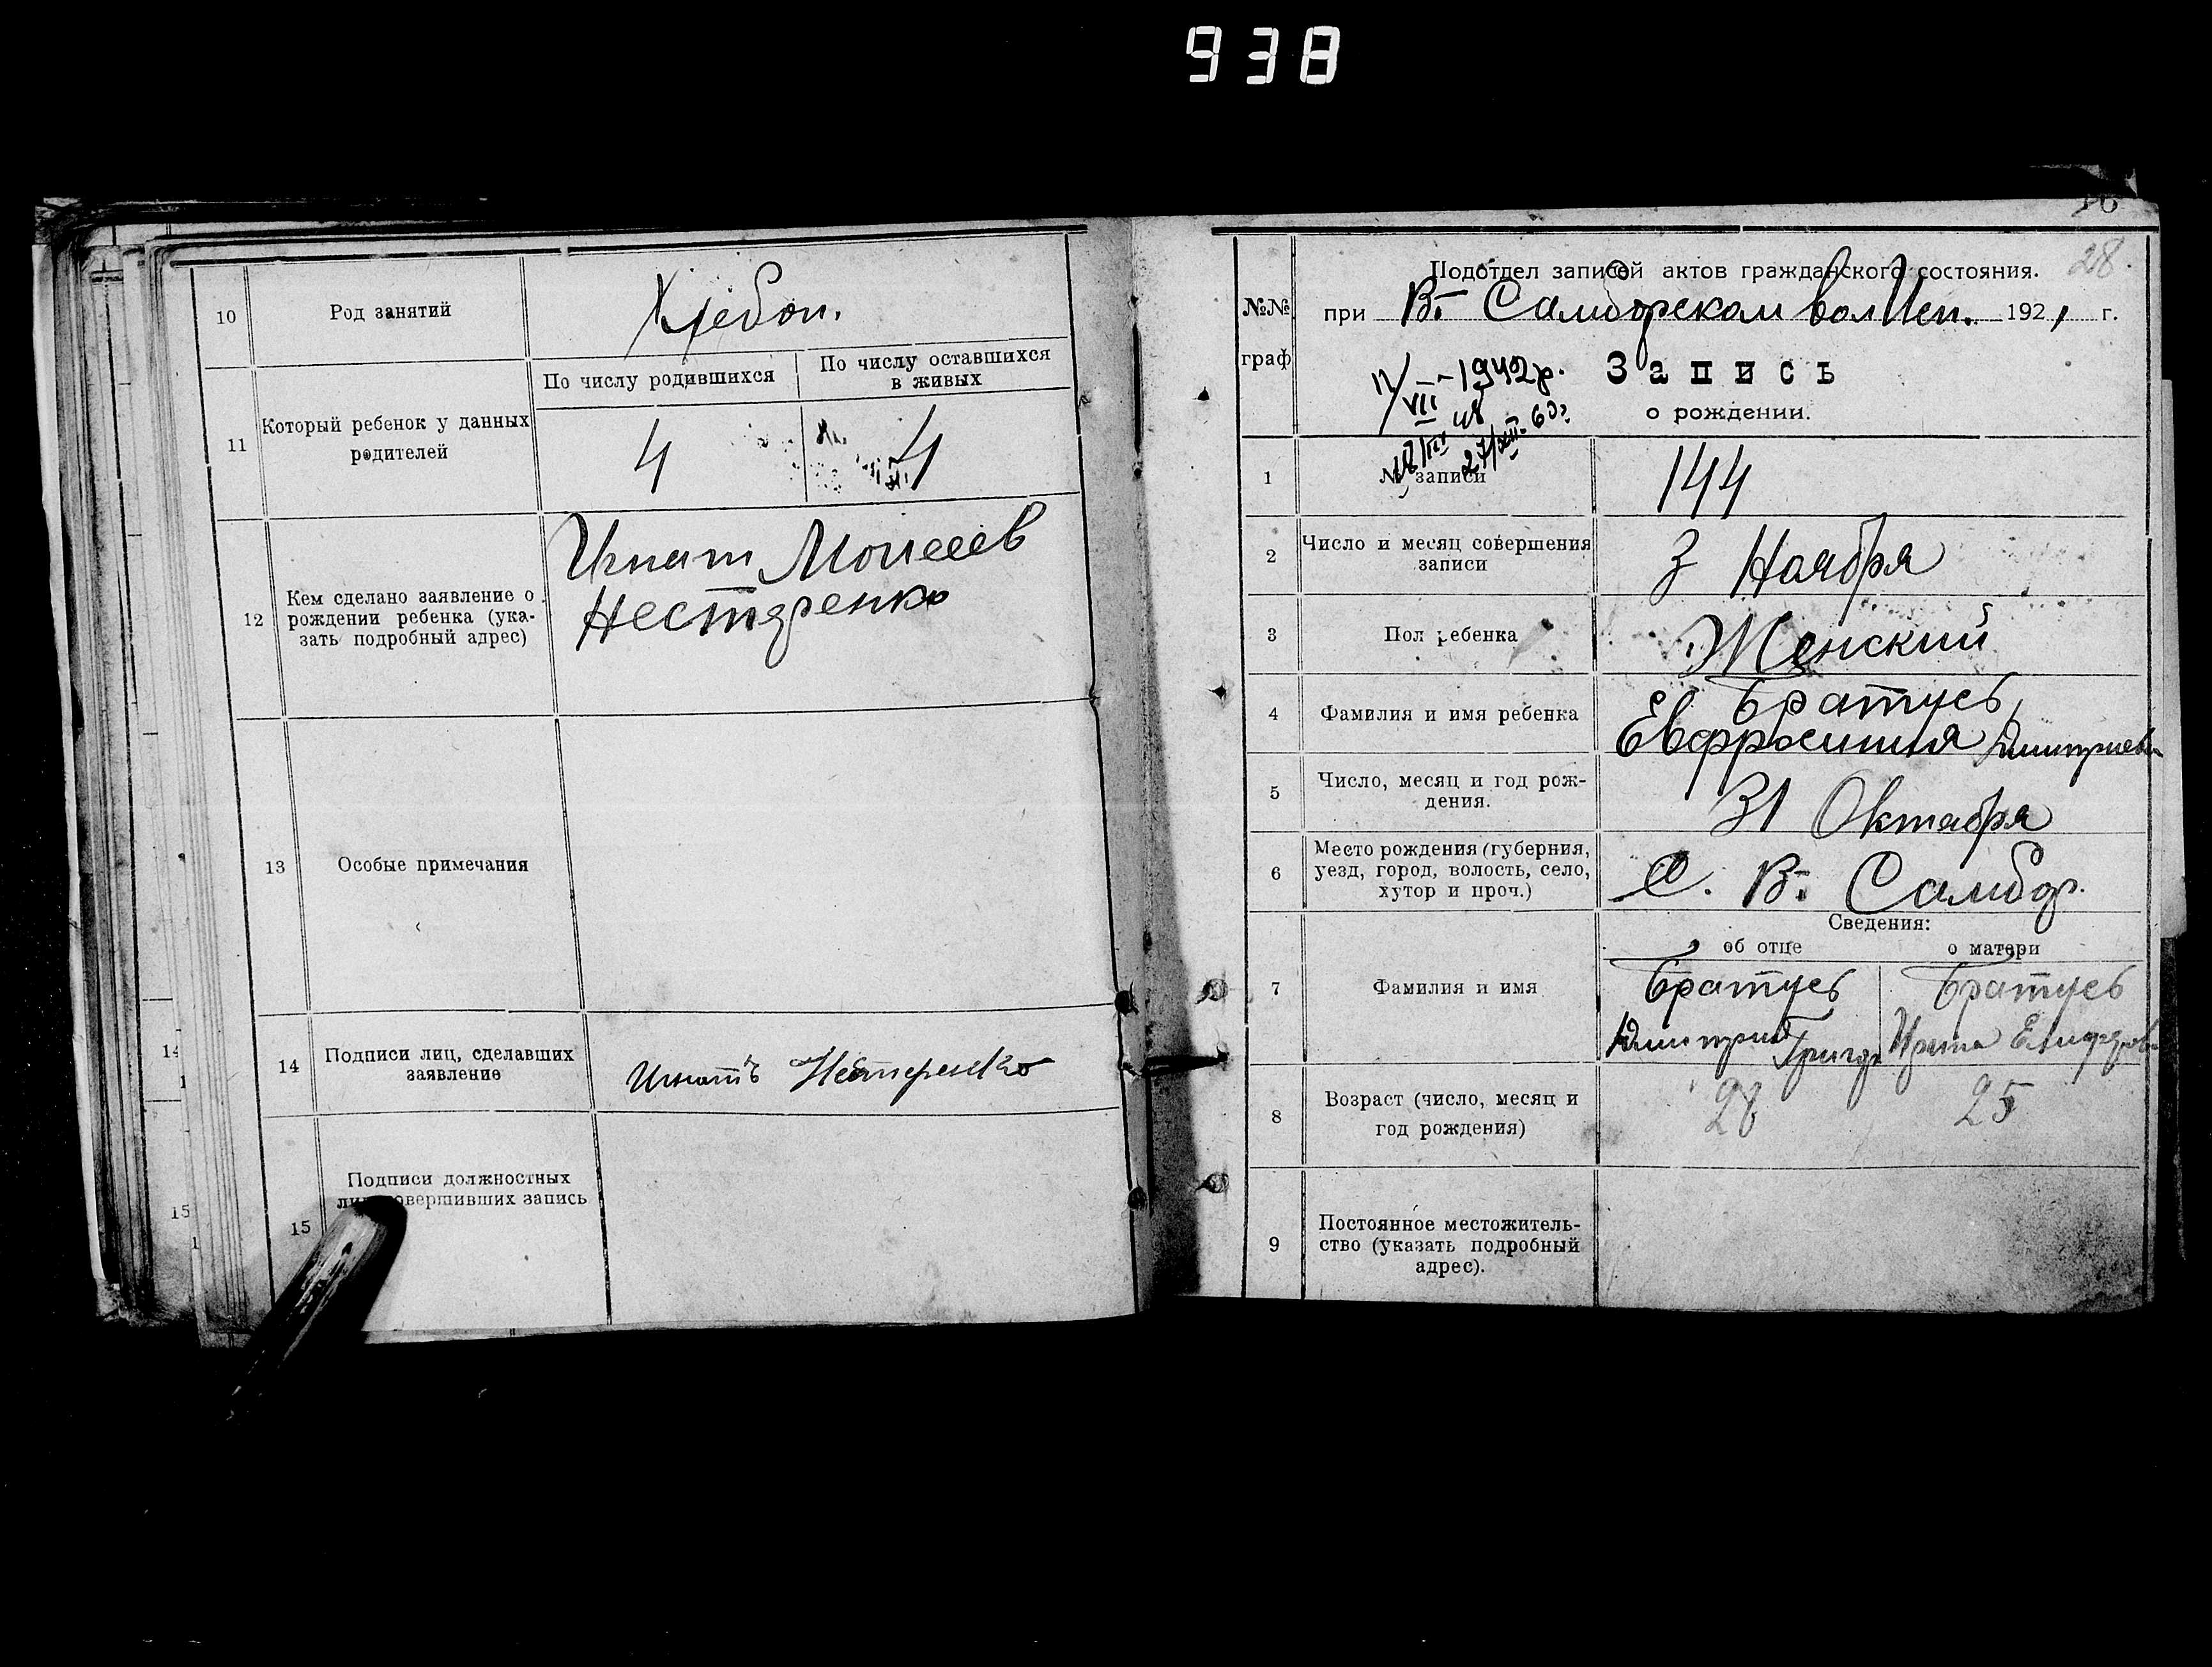 938
10
Род занятий
Хлебоп.
11
Который ребенок у данных
родителей
По числу родившихся
По числу оставшихся
в живых
4
4
12
Кем сделано заявление о
рождении ребенка (ука-
зать подробный адрес)
Игнат Моисеев
Нестеренко
13
Особые примечания
14
Подписи лиц, сделавших
заявление
Игнатъ Нестеренко
15
Подписи должностных
лиц, совершивших запись
14
1
15
1
28.
№№
граф
Подотдел записей актов гражданского состояния.
при В.- Самборском вол Исп. 1921 г.
Запись
о рождении.
17/VII-1942г.
18/III 48
27/XII. 60г
1
№ записи
144
2
Число и месяц совершения
записи
3 Ноября
3
Пол ребенка
Женский
4
Фамилия и имя ребенка
Братусь
Евфросиния Дмитриевн
5
Число, месяц и год рож-
дения.
31 Октября
6
Место рождения (губерния,
уезд, город, волость, село,
хутор и проч.)
С. В.- Самбор.
Сведения:
об отце
о матери
7
Фамилия и имя
Братусь
Дмитрий Григор
Братусь
Ирина
8
Возраст (число, месяц и
год рождения)
28
25
9
Постоянное местожитель-
ство (указать подробный
адрес).